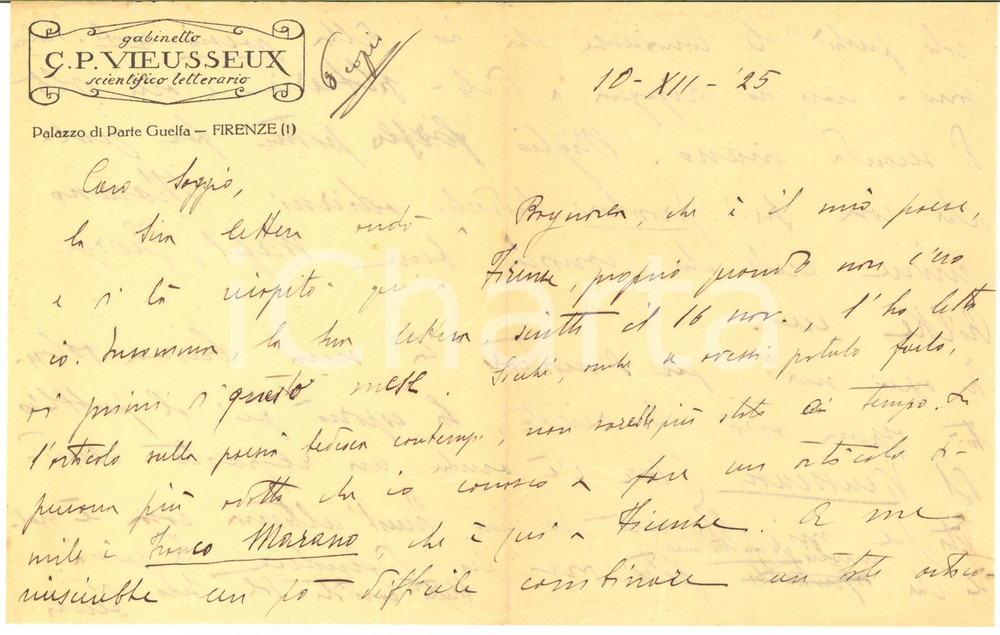 gabinetto
G.P. VIEUSSEUX
scientifico letterario
Palazzo di Parte Guelfa — FIRENZE (1)
10 - XII - '25
Caro
la Sua lettera andò a Bagnara, che è il mio paese,
e si là rispitò qui a Firenze, proprio quando non c'ero
io. Insomma, la Sua lettera, scritta il 16 nov., l'ho letta
ai primi di questo mese. Sicché, anche se avessi potuto farlo,
l'articolo sulla poesia tedesca contemp., non sarebbe più stato in tempo. La
persona più adatta che io conosco a fare un articolo si-
mile è Franco Marano che è qui a Firenze. A me
riuscirebbe un pò difficile combinare un tale artico-
iCharta